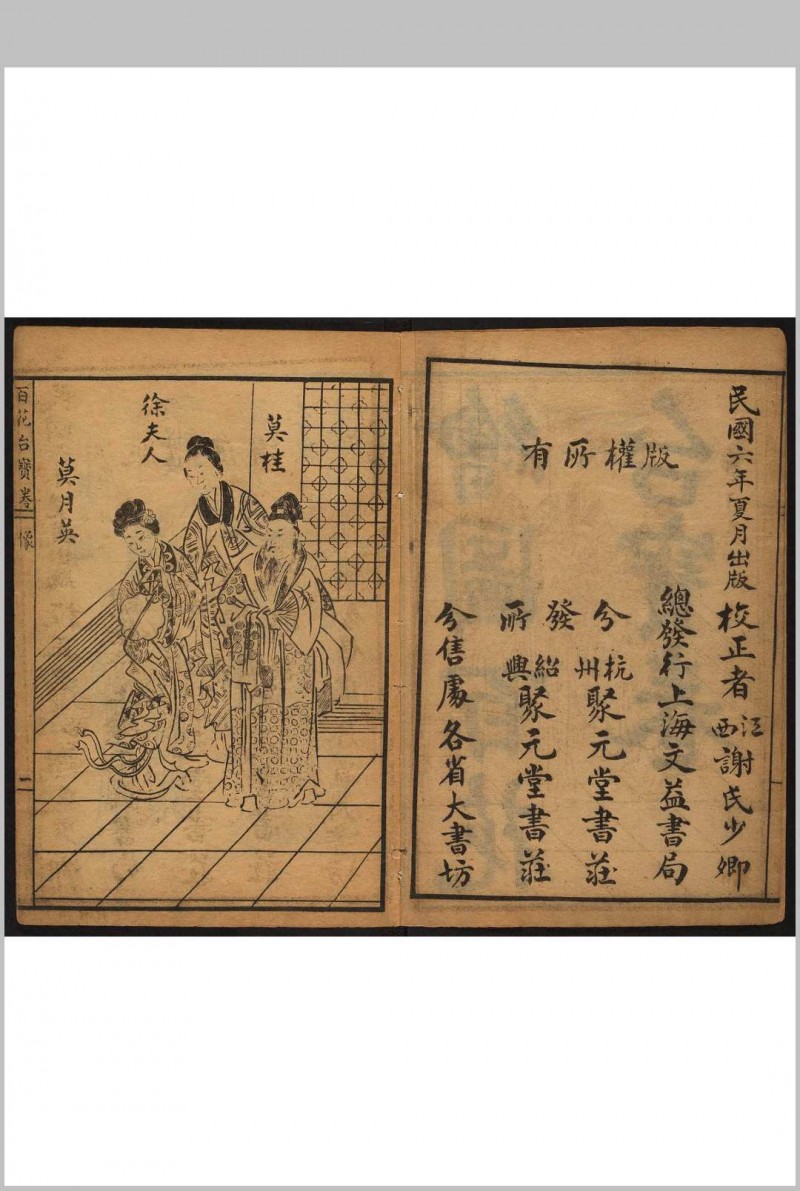 民國六年夏月出版
校正者
江西
謝氏少卿
總發行上海文益書局
版權所有
分發所
杭州
聚元堂書莊
紹興
聚元堂書莊
分售處各省大書坊
莫桂
徐夫人
莫月英
百花台寶卷
像
一